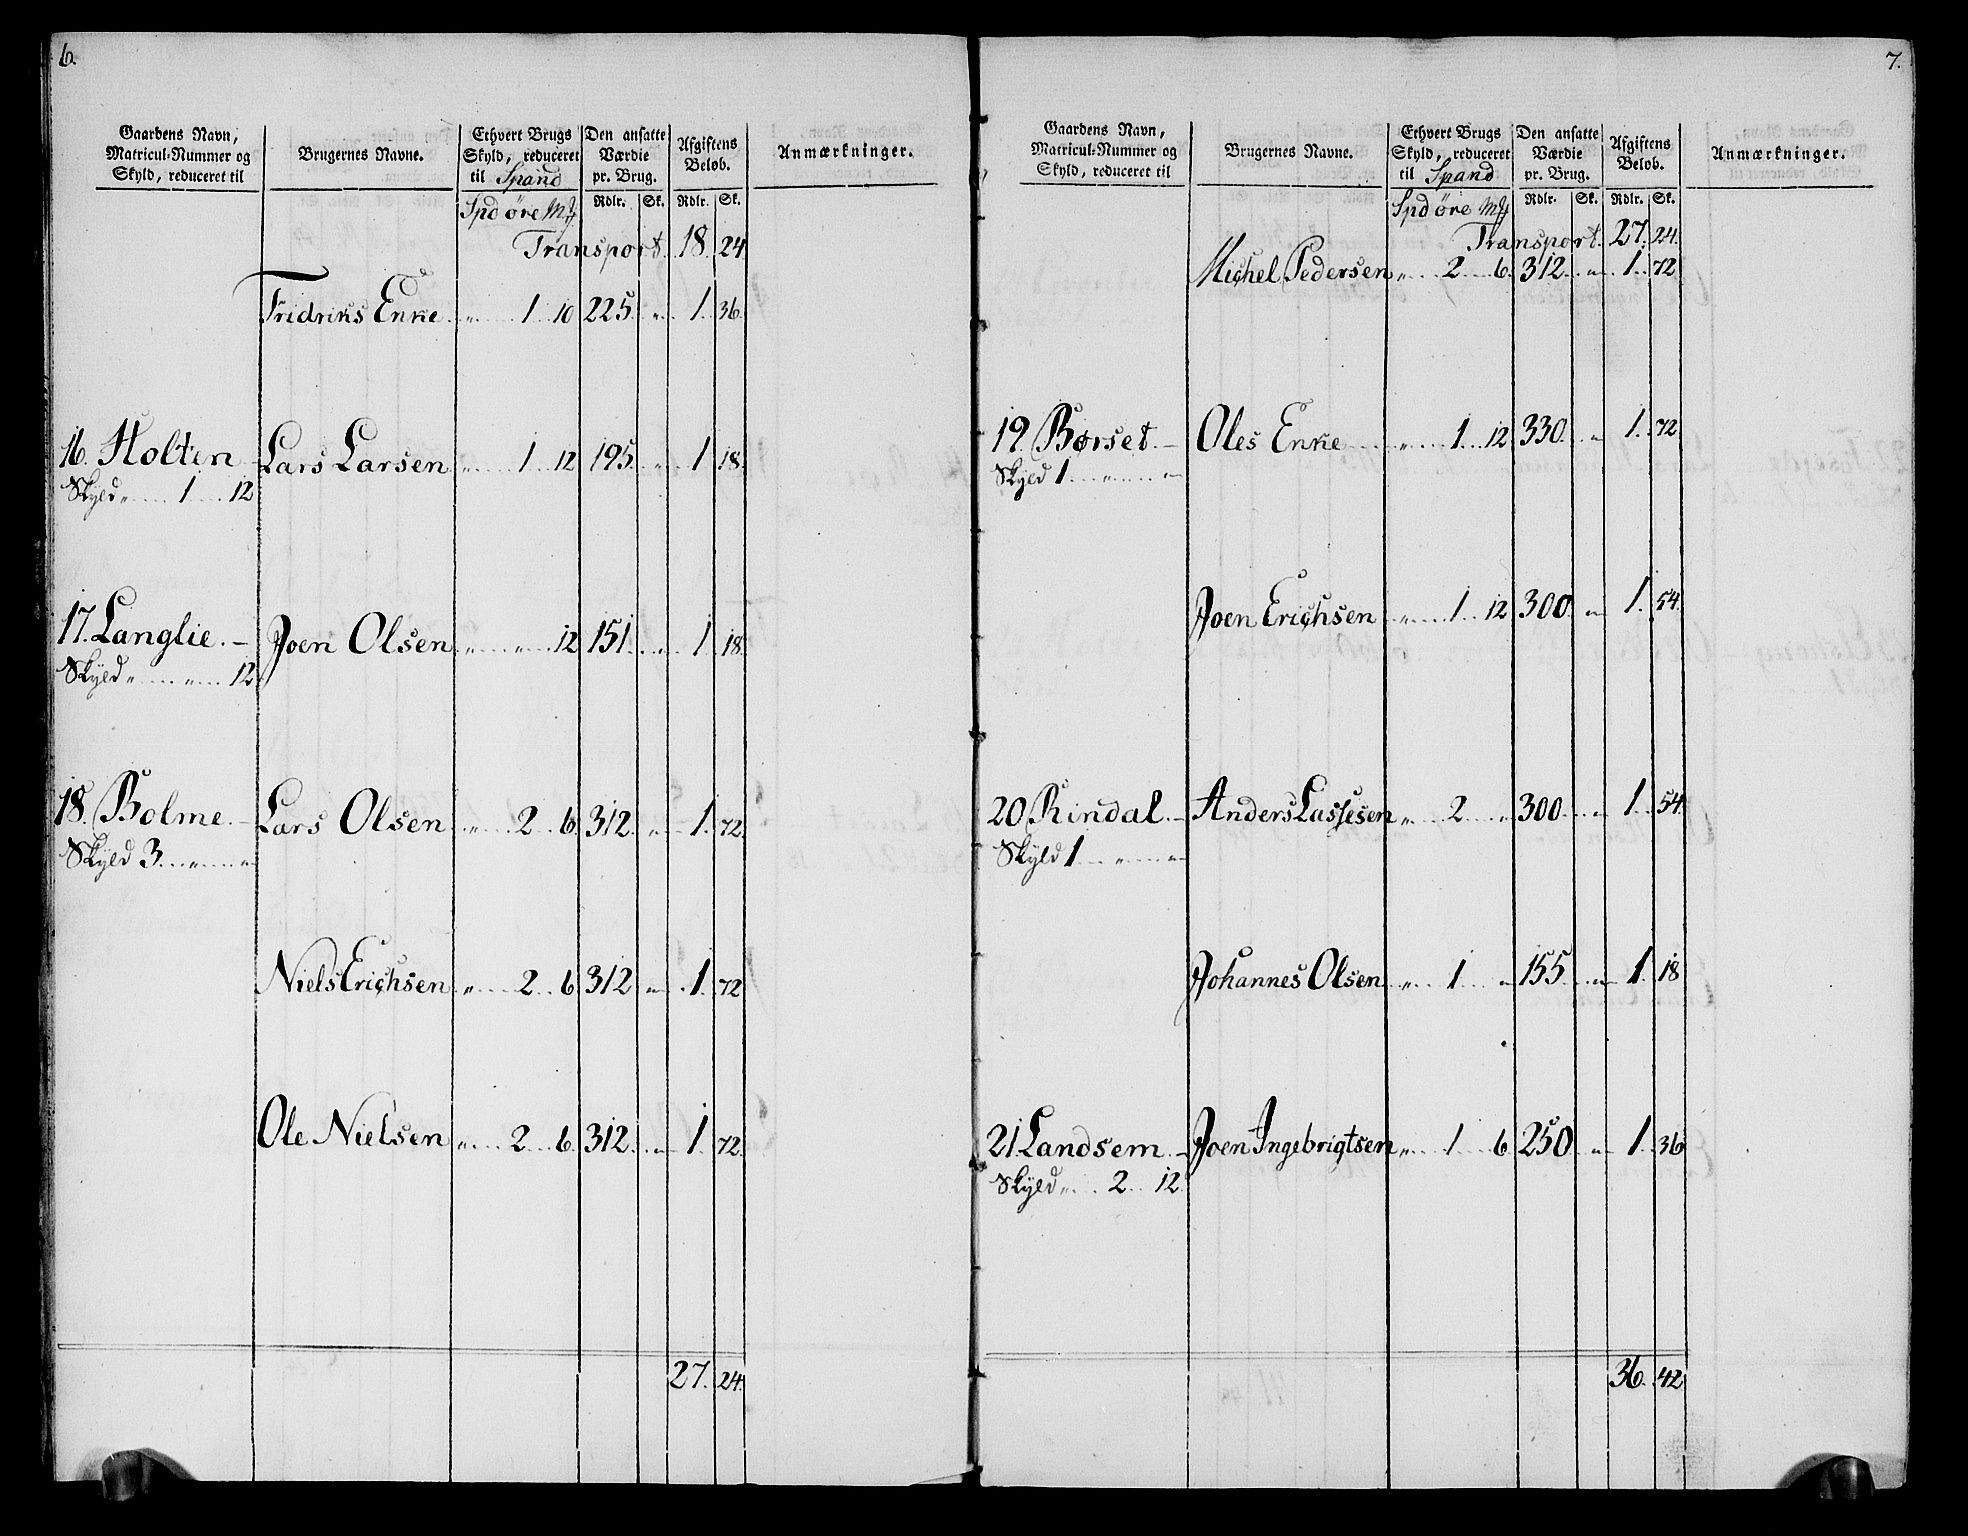 6.
Gaardens Navn, Matricul-Nummer og Skyld, reduceret til
Brugernes Navne.
Ethvert Brugs Skyld, reduceret til Spand
Den ansatte Værdie pr. Brug.
Afgiftens Beløb.
Anmærkninger.
Spd øre Mf Rdlr. Sk. Rdlr. Sk.
Transport 18. 24
Fridriks Enke „ 1 10 225. „ 1. 36.
16. Holten Lars Larsen „ 1 12 195. „ 1 18.
Skyld „ 1 12
17. Langlie. – Joen Olsen „ „ 12 151. „ 1 18.
Skyld „ „ 12
18. Bolme. – Lars Olsen „ 2 6 312. „ 1. 72.
Skyld 3 „ „
Niels Erichsen „ 2 6 312 „ 1. 72
Ole Nielsen „ 2 6. 312. „ 1. 72.
27. 24.
7.
Gaardens Navn, Matricul-Nummer og Skyld, reduceret til
Brugernes Navne.
Ethvert Brugs Skyld, reduceret til Spand
Den ansatte Værdie pr. Brug.
Afgiftens Beløb.
Anmærkninger.
Spd øre Mf Rdlr. Sk. Rdlr. Sk.
Transport. 27. 24.
Michel Pedersen „ 2 6. 312. „ 1. 72
19. Børset. – Oles Enke „ 1 12 330. „ 1. 72.
Skyld 1 „ „
Joen Erichsen „ 1 12 300. „ 1. 54.
20. Rindal. – Anders Lassesen „ 2 „ 300 „ 1. 54.
Skyld 1 „ „
Johannes Olsen „ 1 „ 155. „ 1. 18
21. Landsem. – Joen Ingebrigtsen „ 1 6. 250. „ 1. 36
Skyld „ 2 12.
36. 42